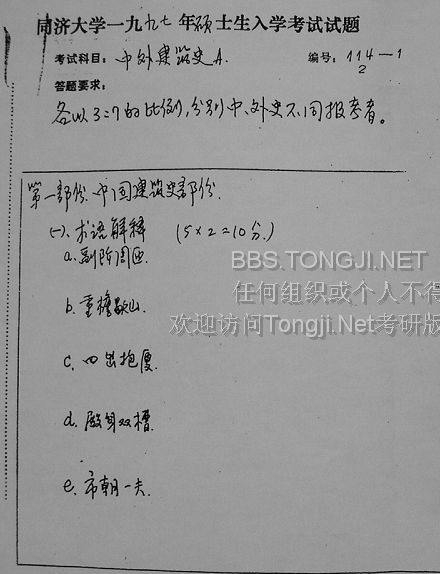 同济大学一九九七年硕士生入学考试试题
考试科目: 中外建筑史A. 编号: 114—1
2
答题要求:
各以3:7的比例,分别中、外史不同报考者。
第一部份、中国建筑史部份.
(一)、术语解释 (5×2=10分.)
a. 副阶周匝.
BBS.TONGJI.NET
任何组织或个人不得
b. 重檐歇山.
欢迎访问Tongji.Net考研版
c. 四出抱厦.
d. 殿身双槽.
e. 市朝一夫.